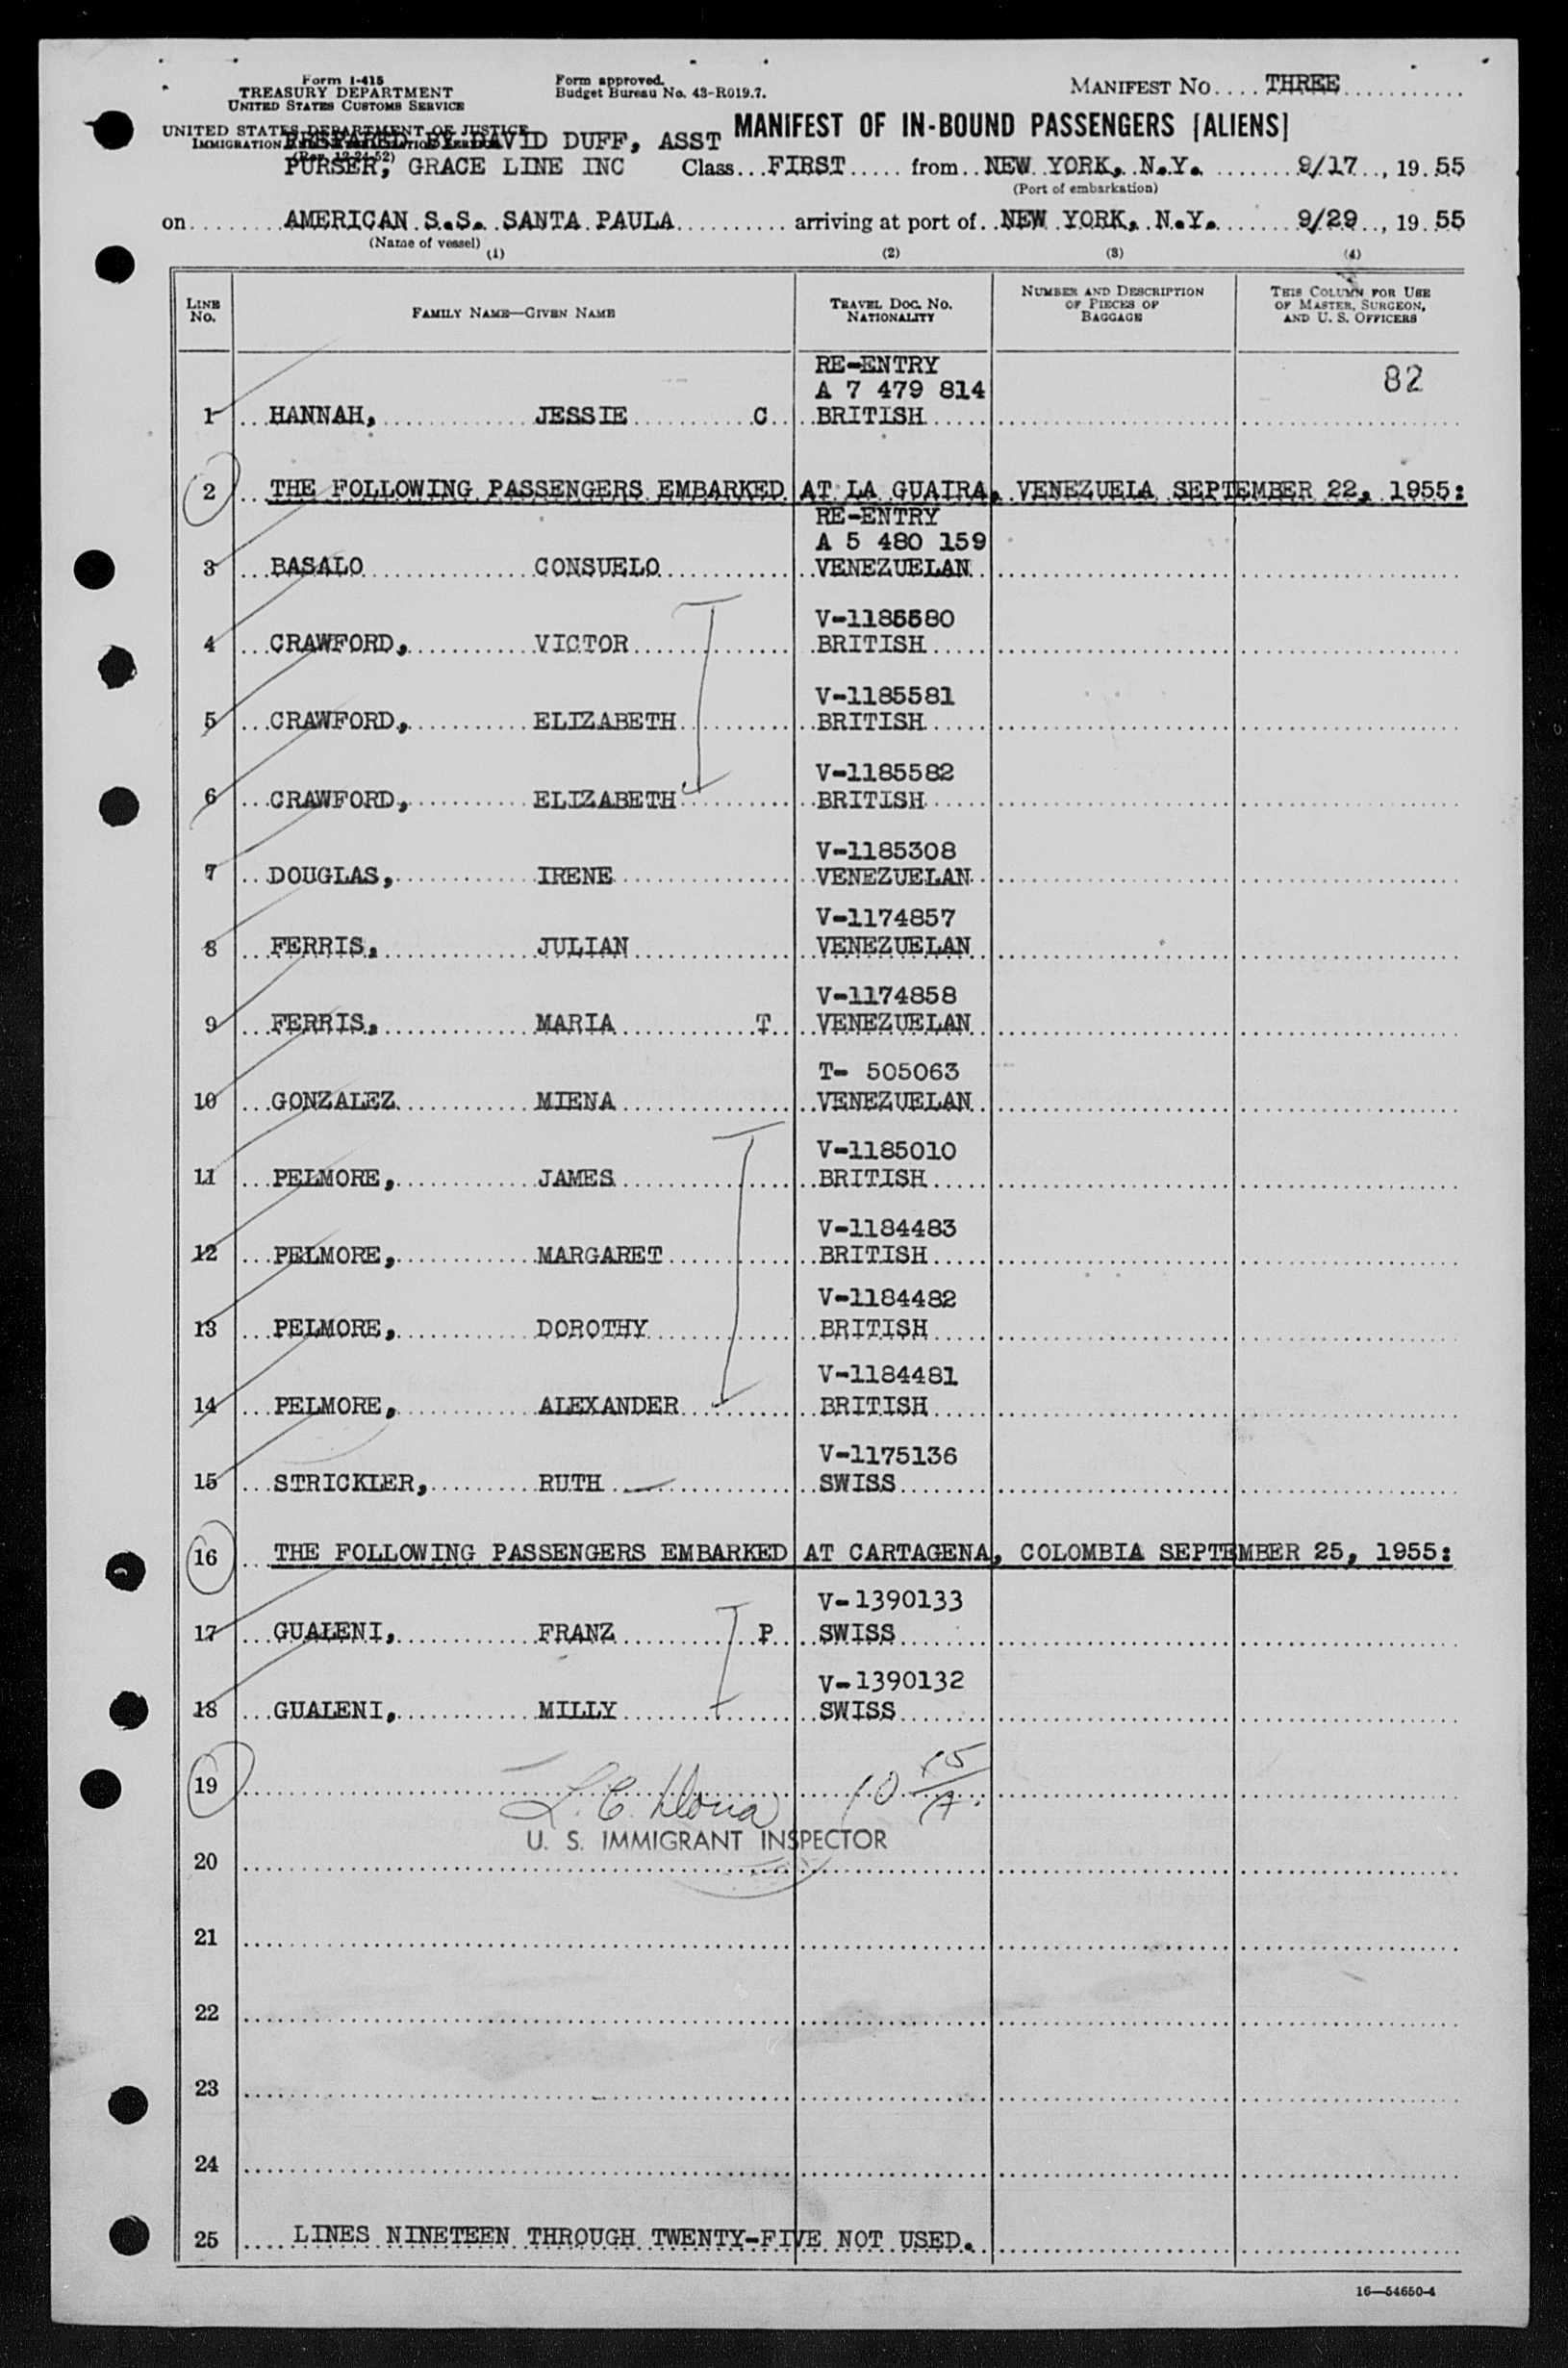 Form I-415
TREASURY DEPARTMENT
UNITED STATES CUSTOMS SERVICE
Form approved.
Budget Bureau No. 43-R019.7.
MANIFEST NO.... THREE
UNITED STATES DEPARTMENT OF JUSTICE
IMMIGRATION
(Rev. 12-24-52)
PREPARED BY DAVID DUFF, ASST
PURSER, GRACE LINE INC
MANIFEST OF IN-BOUND PASSENGERS [ALIENS]
Class...FIRST..... from..NEW YORK, N.Y. ........9/17.., 19.55
(Port of embarkation)
on........AMERICAN S.S. SANTA PAULA.......... arriving at port of..NEW YORK, N.Y.........9/29.., 19.55
(Name of vessel)
(1) (2) (3) (4)
LINE NO. FAMILY NAME—GIVEN NAME TRAVEL DOC. NO. NATIONALITY NUMBER AND DESCRIPTION OF PIECES OF BAGGAGE THIS COLUMN FOR USE OF MASTER, SURGEON, AND U. S. OFFICERS
RE-ENTRY
A 7 479 814 82
1 HANNAH, JESSIE C BRITISH
2 THE FOLLOWING PASSENGERS EMBARKED AT LA GUAIRA, VENEZUELA SEPTEMBER 22, 1955:
RE-ENTRY
A 5 480 159
3 BASALO CONSUELO VENEZUELAN
V-1185580
4 CRAWFORD, VICTOR BRITISH
V-1185581
5 CRAWFORD, ELIZABETH BRITISH
V-1185582
6 CRAWFORD, ELIZABETH BRITISH
V-1185308
7 DOUGLAS, IRENE VENEZUELAN
V-1174857
8 FERRIS, JULIAN VENEZUELAN
V-1174858
9 FERRIS, MARIA T VENEZUELAN
T- 505063
10 GONZALEZ MIENA VENEZUELAN
V-1185010
11 PELMORE, JAMES BRITISH
V-1184483
12 PELMORE, MARGARET BRITISH
V-1184482
13 PELMORE, DOROTHY BRITISH
V-1184481
14 PELMORE, ALEXANDER BRITISH
V-1175136
15 STRICKLER, RUTH SWISS
16 THE FOLLOWING PASSENGERS EMBARKED AT CARTAGENA, COLOMBIA SEPTEMBER 25, 1955:
V-1390133
17 GUALENI, FRANZ P SWISS
V-1390132
18 GUALENI, MILLY SWISS
19 L. C. 10 15/A.
U. S. IMMIGRANT INSPECTOR
20
21
22
23
24
25 LINES NINETEEN THROUGH TWENTY-FIVE NOT USED.
16—54650-4